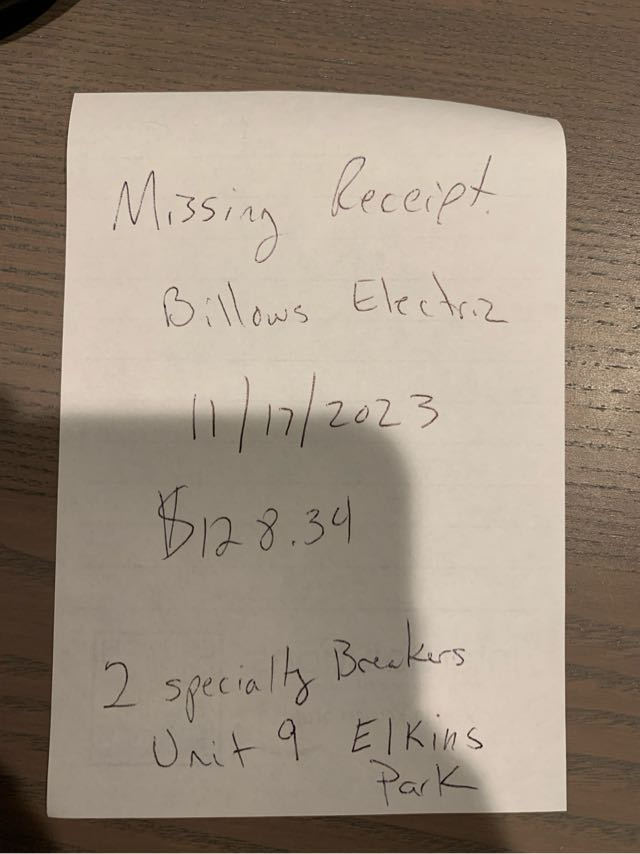 Missing Receipt.
Billows Electric
11/17/2023
$128.34
2 specialty Breakers
Unit 9 Elkins
Park